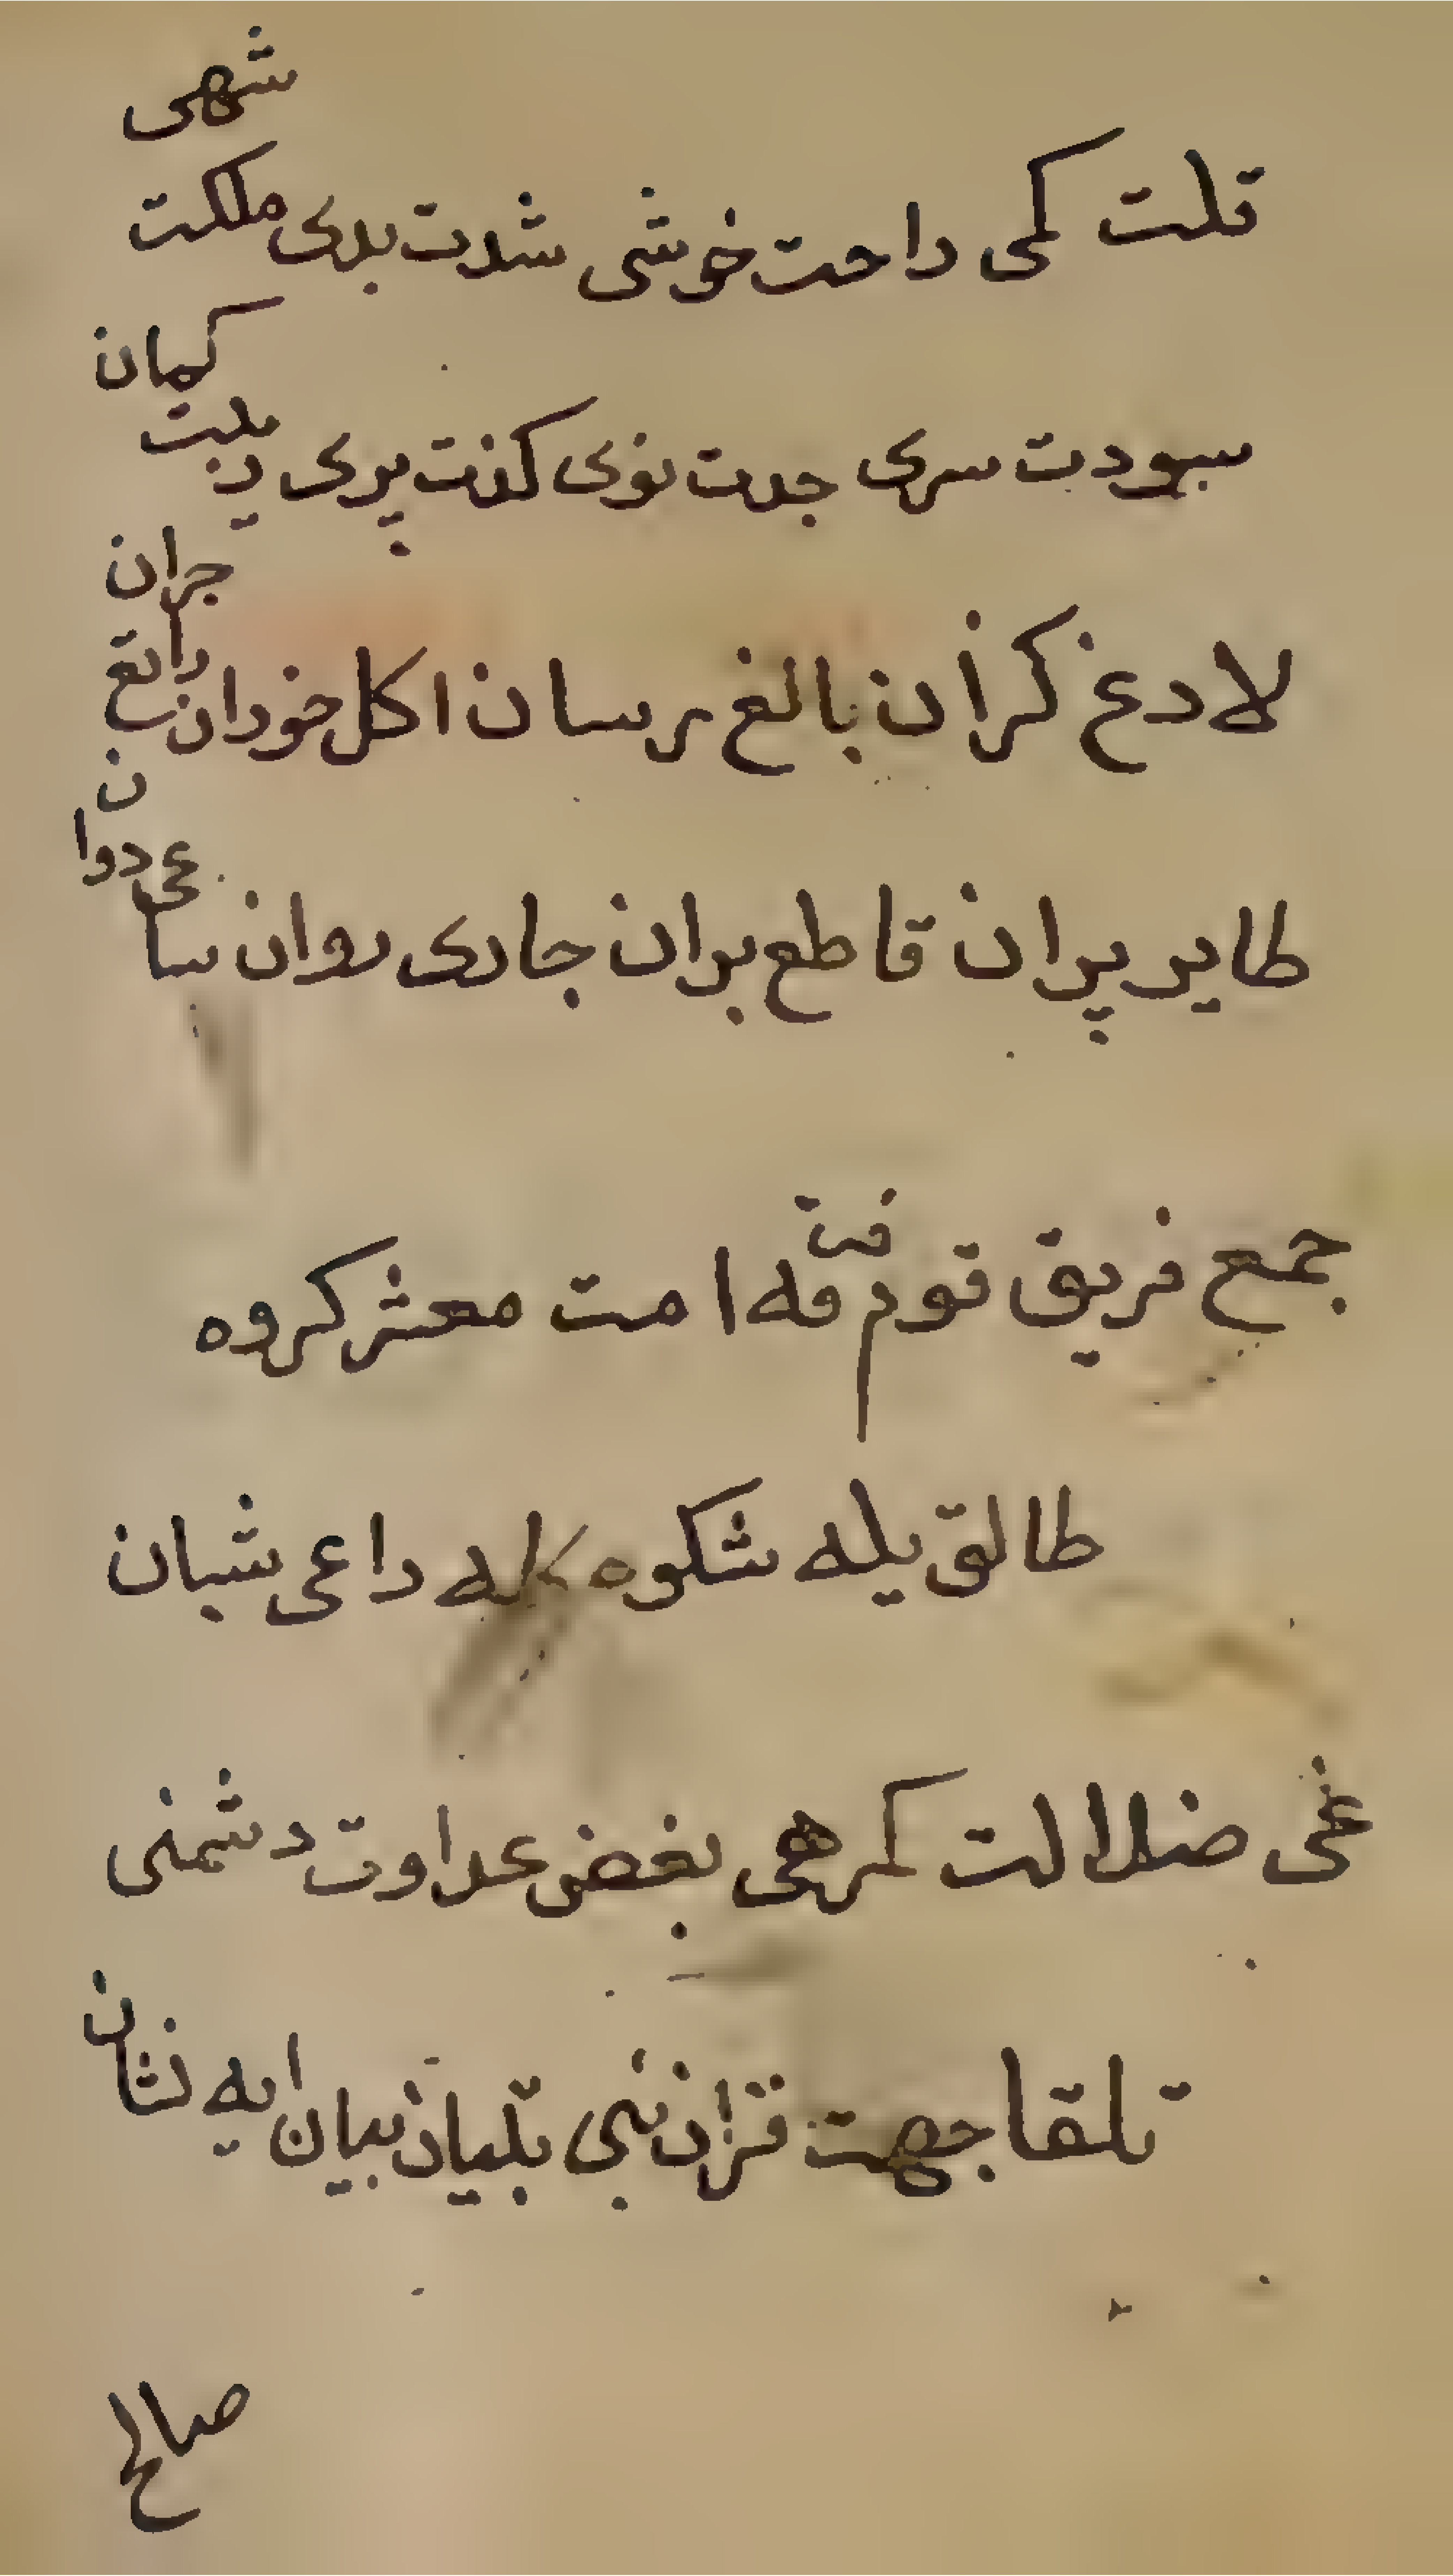 قلت کمی راحت خوشی شدت بدی ملکت شهی
سهودت سری جدت نوی کذبت پری ریبت کمان
لادغ کزان بالغ رسان اکل خودان راتع جران
طایر پران قاطع بران جاری روان ساعی دوان
جمع فریق قوم فرقه امت معشر کروه
طالق یله شکوه کله داعی شبان
غی ضلالت کمرهی بغض عداوت دشمنی
تلقا جهت قران نبی تبیان بیان ایه نشان
صالح